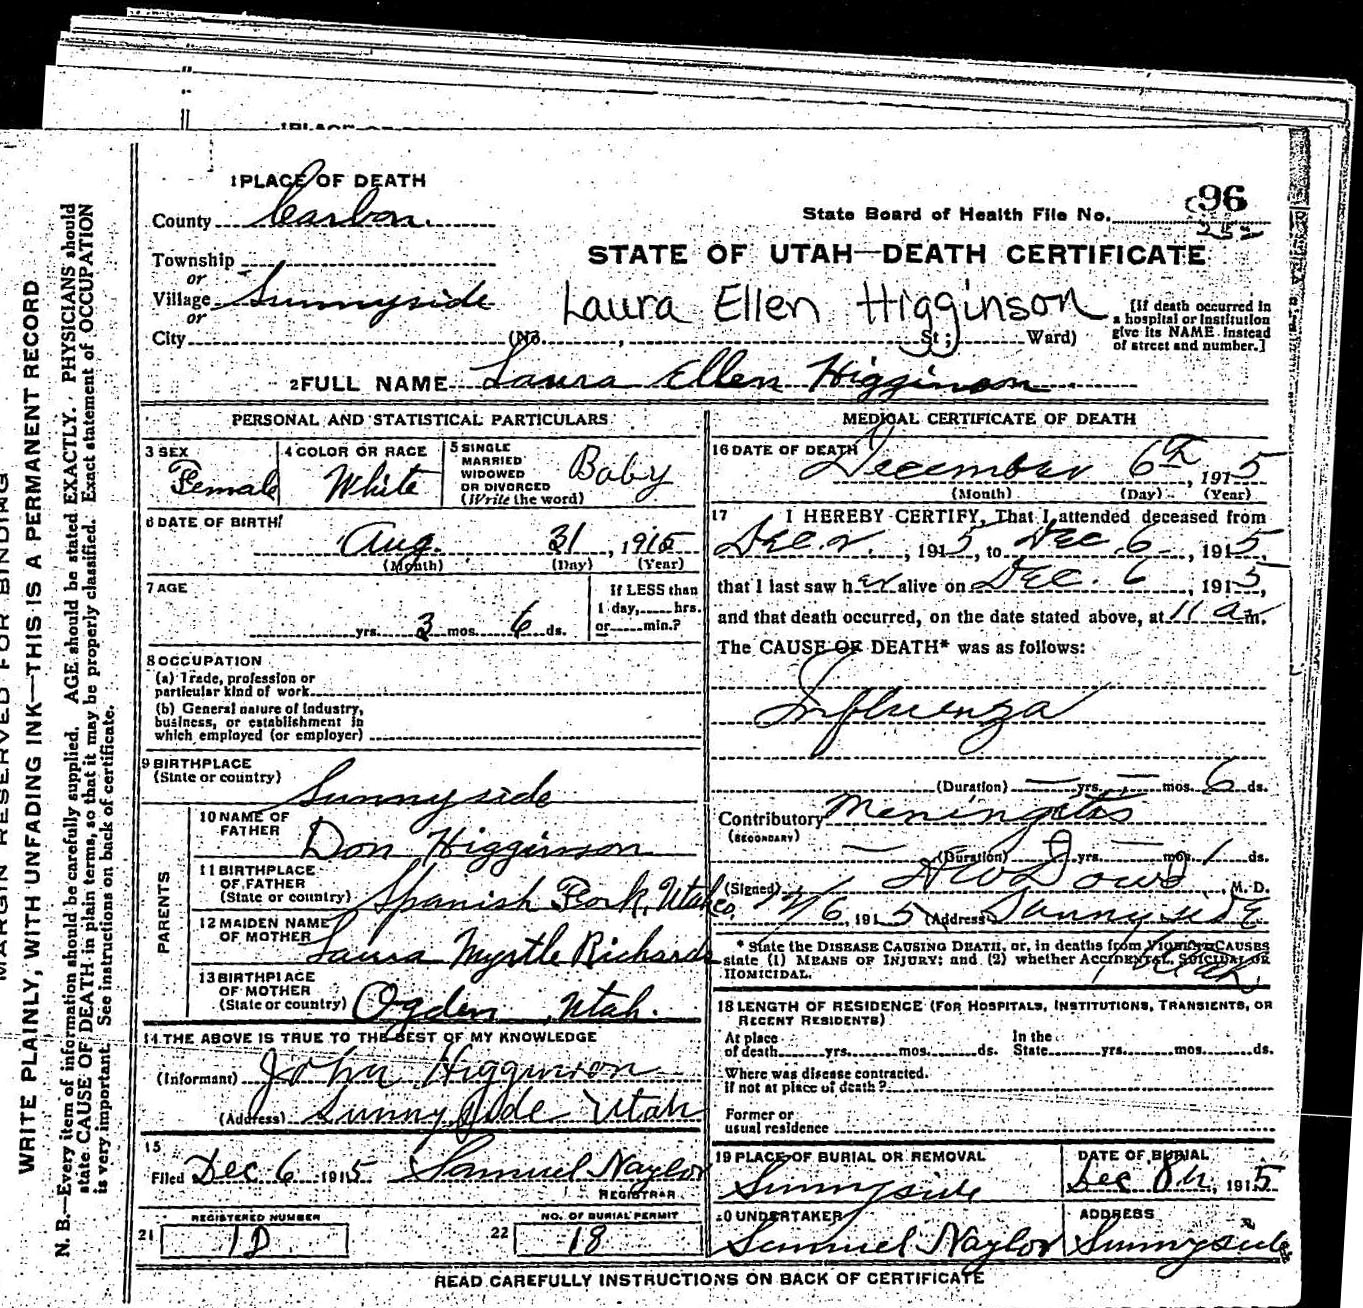 1 PLACE OF DEATH
County Carbon.
Township
or
Village Sunnyside
or
City (No. , St; Ward)
State Board of Health File No. 96
STATE OF UTAH—DEATH CERTIFICATE
Laura Ellen Higginson
[If death occurred in
a hospital or institution
give its NAME instead
of street and number.]
2 FULL NAME Laura Ellen Higginson
PERSONAL AND STATISTICAL PARTICULARS
3 SEX
Female
4 COLOR OR RACE
White
5 SINGLE
MARRIED
WIDOWED
OR DIVORCED
(Write the word)
Baby
6 DATE OF BIRTH
Aug. 31, 1915
(Month) (Day) (Year)
7 AGE
yrs. 3 mos. 6 ds.
If LESS than
1 day, hrs.
or min.?
8 OCCUPATION
(a) Trade, profession or
particular kind of work
(b) General nature of industry,
business, or establishment in
which employed (or employer)
9 BIRTHPLACE
(State or country)
Sunnyside
PARENTS
10 NAME OF
FATHER
Don Higginson
11 BIRTHPLACE
OF FATHER
(State or country)
Spanish Fork, Utah Co.
12 MAIDEN NAME
OF MOTHER
Laura Myrtle Richards
13 BIRTHPLACE
OF MOTHER
(State or country)
Ogden, Utah.
14 THE ABOVE IS TRUE TO THE BEST OF MY KNOWLEDGE
(Informant) John Higginson
(Address) Sunnyside Utah
15
Filed Dec 6 1915 Samuel Naylor
REGISTRAR
21 REGISTERED NUMBER
22 NO. OF BURIAL PERMIT
18
MEDICAL CERTIFICATE OF DEATH
16 DATE OF DEATH
December 6th, 1915
(Month) (Day) (Year)
17 I HEREBY CERTIFY, That I attended deceased from
Dec 2. , 1915, to Dec. 6 , 1915,
that I last saw her alive on Dec. 6 , 1915,
and that death occurred, on the date stated above, at 11 a m.
The CAUSE OF DEATH* was as follows:
Influenza
(Duration) — yrs. — mos. 6 ds.
Contributory Meningitis
(SECONDARY)
(Duration) yrs. — mos. 1 ds.
(Signed) , M. D.
12/6, 1915 (Address) Sunnyside
Utah
* State the DISEASE CAUSING DEATH, or, in deaths from VIOLENT CAUSES
state (1) MEANS OF INJURY; and (2) whether ACCIDENTAL, SUICIDAL OR
HOMICIDAL.
18 LENGTH OF RESIDENCE (FOR HOSPITALS, INSTITUTIONS, TRANSIENTS, OR
RECENT RESIDENTS)
At place
of death yrs. mos. ds.
In the
State yrs. mos. ds.
Where was disease contracted.
if not at place of death?
Former or
usual residence
19 PLACE OF BURIAL OR REMOVAL
Sunnyside
DATE OF BURIAL
Dec 8th, 1915
20 UNDERTAKER
Samuel Naylor
ADDRESS
Sunnyside
READ CAREFULLY INSTRUCTIONS ON BACK OF CERTIFICATE
MARGIN RESERVED FOR BINDING
WRITE PLAINLY, WITH UNFADING INK—THIS IS A PERMANENT RECORD
N. B.—Every item of information should be carefully supplied. AGE should be stated EXACTLY. PHYSICIANS should
state CAUSE OF DEATH in plain terms, so that it may be properly classified. Exact statement of OCCUPATION
is very important. See instructions on back of certificate.